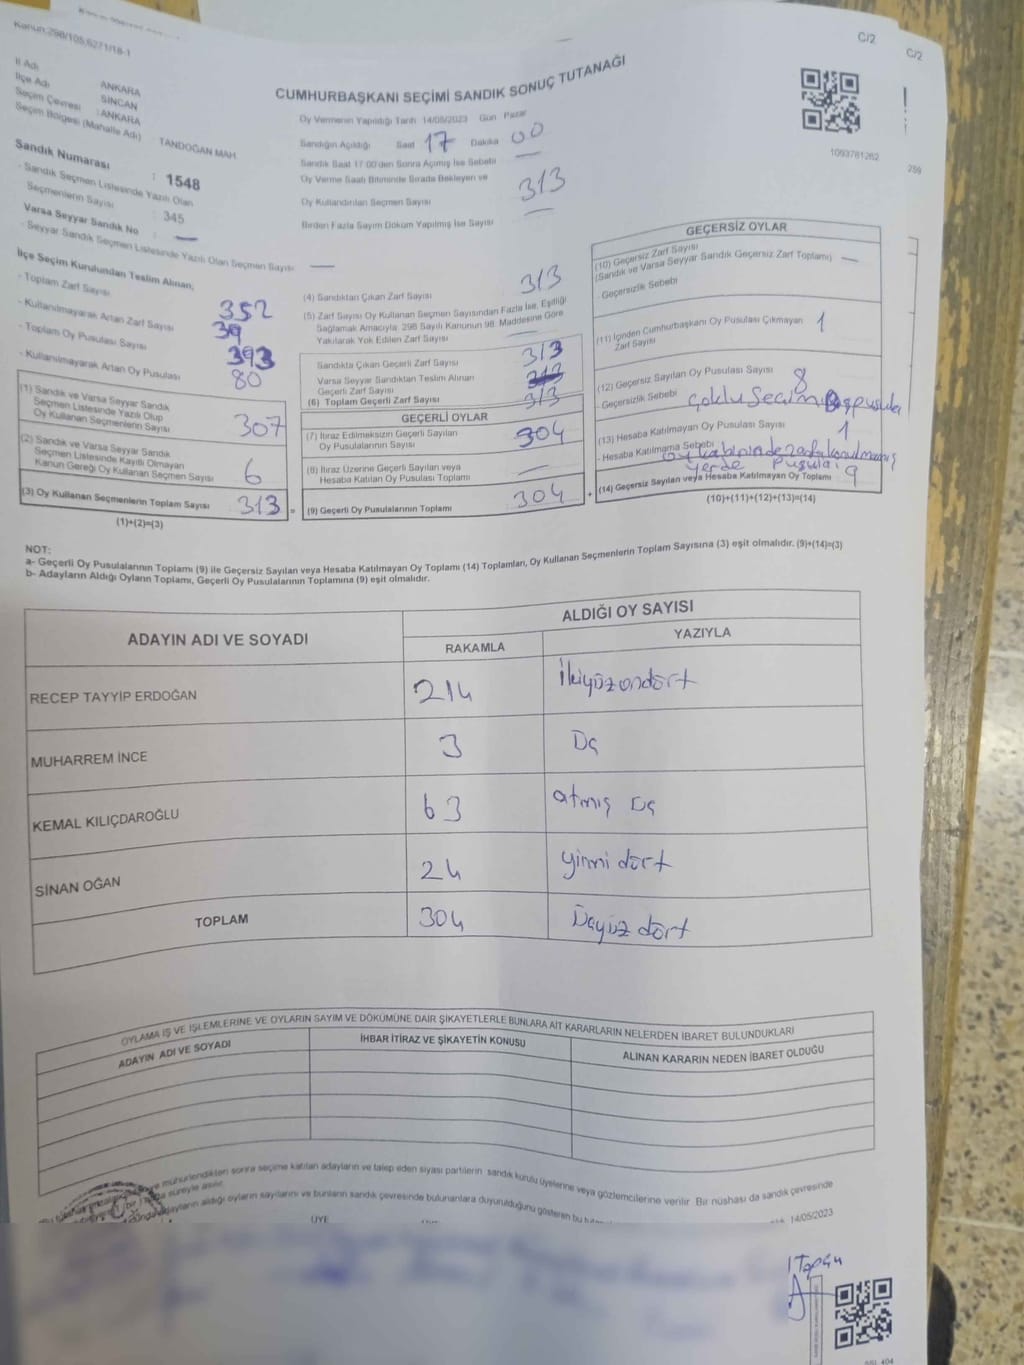 Kanun:298/105,6271/18-1
C/2
C/2
İl Adı : ANKARA
İlçe Adı : SİNCAN
Seçim Çevresi : ANKARA
Seçim Bölgesi (Mahalle Adı) TANDOĞAN MAH.
CUMHURBAŞKANI SEÇİMİ SANDIK SONUÇ TUTANAĞI
Oy Vermenin Yapıldığı Tarih 14/05/2023 Gün Pazar
Sandığın Açıldığı Saat 17 Dakika 00
Sandık Saat 17.00'den Sonra Açılmış İse Sebebi —
Oy Verme Saati Bitiminde Sırada Bekleyen ve
Oy Kullandırılan Seçmen Sayısı 313
Birden Fazla Sayım Döküm Yapılmış İse Sayısı —
1093781262
259
Sandık Numarası : 1548
- Sandık Seçmen Listesinde Yazılı Olan
Seçmenlerin Sayısı : 345
Varsa Seyyar Sandık No : —
- Seyyar Sandık Seçmen Listesinde Yazılı Olan Seçmen Sayısı —
İlçe Seçim Kurulundan Teslim Alınan;
- Toplam Zarf Sayısı 352
- Kullanılmayarak Artan Zarf Sayısı 39
- Toplam Oy Pusulası Sayısı 393
- Kullanılmayarak Artan Oy Pusulası 80
(1) Sandık ve Varsa Seyyar Sandık
Seçmen Listesinde Yazılı Olup
Oy Kullanan Seçmenlerin Sayısı 307
(2) Sandık ve Varsa Seyyar Sandık
Seçmen Listesinde Kayıtlı Olmayan
Kanun Gereği Oy Kullanan Seçmen Sayısı 6
(3) Oy Kullanan Seçmenlerin Toplam Sayısı 313
(1)+(2)=(3)
(4) Sandıktan Çıkan Zarf Sayısı 313
(5) Zarf Sayısı Oy Kullanan Seçmen Sayısından Fazla İse, Eşitliği
Sağlamak Amacıyla, 298 Sayılı Kanunun 98. Maddesine Göre
Yakılarak Yok Edilen Zarf Sayısı —
Sandıkta Çıkan Geçerli Zarf Sayısı 313
Varsa Seyyar Sandıktan Teslim Alınan
Geçerli Zarf Sayısı
(6) Toplam Geçerli Zarf Sayısı 313
GEÇERLİ OYLAR
(7) İtiraz Edilmeksizin Geçerli Sayılan
Oy Pusulalarının Sayısı 304
(8) İtiraz Üzerine Geçerli Sayılan veya
Hesaba Katılan Oy Pusulaları Toplamı —
(9) Geçerli Oy Pusulalarının Toplamı 304
GEÇERSİZ OYLAR
(10) Geçersiz Zarf Sayısı
(Sandık ve Varsa Seyyar Sandık Geçersiz Zarf Toplamı) —
- Geçersizlik Sebebi
(11) İçinden Cumhurbaşkanı Oy Pusulası Çıkmayan
Zarf Sayısı 1
(12) Geçersiz Sayılan Oy Pusulası Sayısı 8
- Geçersizlik Sebebi Çoklu Seçim Boş pusula
(13) Hesaba Katılmayan Oy Pusulası Sayısı 1
- Hesaba Katılmama Sebebi Oy kabininde zarfa konulmamış
yerde Pusula
(14) Geçersiz Sayılan veya Hesaba Katılmayan Oy Toplamı 9
(10)+(11)+(12)+(13)=(14)
NOT:
a- Geçerli Oy Pusulalarının Toplamı (9) ile Geçersiz Sayılan veya Hesaba Katılmayan Oy Toplamı (14) Toplamları, Oy Kullanan Seçmenlerin Toplam Sayısına (3) eşit olmalıdır. (9)+(14)=(3)
b- Adayların Aldığı Oyların Toplamı, Geçerli Oy Pusulalarının Toplamına (9) eşit olmalıdır.
ADAYIN ADI VE SOYADI ALDIĞI OY SAYISI
RAKAMLA YAZIYLA
RECEP TAYYİP ERDOĞAN 214 İkiyüzondört
MUHARREM İNCE 3 Üç
KEMAL KILIÇDAROĞLU 63 atmış Üç
SİNAN OĞAN 24 yirmi dört
TOPLAM 304 Üçyüz dört
OYLAMA İŞ VE İŞLEMLERİNE VE OYLARIN SAYIM VE DÖKÜMÜNE DAİR ŞİKAYETLERLE BUNLARA AİT KARARLARIN NELERDEN İBARET BULUNDUKLARI
ADAYIN ADI VE SOYADI İHBAR İTİRAZ VE ŞİKAYETİN KONUSU ALINAN KARARIN NEDEN İBARET OLDUĞU
mühürlendikten sonra seçime katılan adayların ve talep eden siyasi partilerin sandık kurulu üyelerine veya gözlemcilerine verilir. Bir nüshası da sandık çevresinde
süreyle asılır.
adayların aldığı oyların sayılarını ve bunların sandık çevresinde bulunanlara duyurulduğunu gösteren bu
14/05/2023
ÜYE